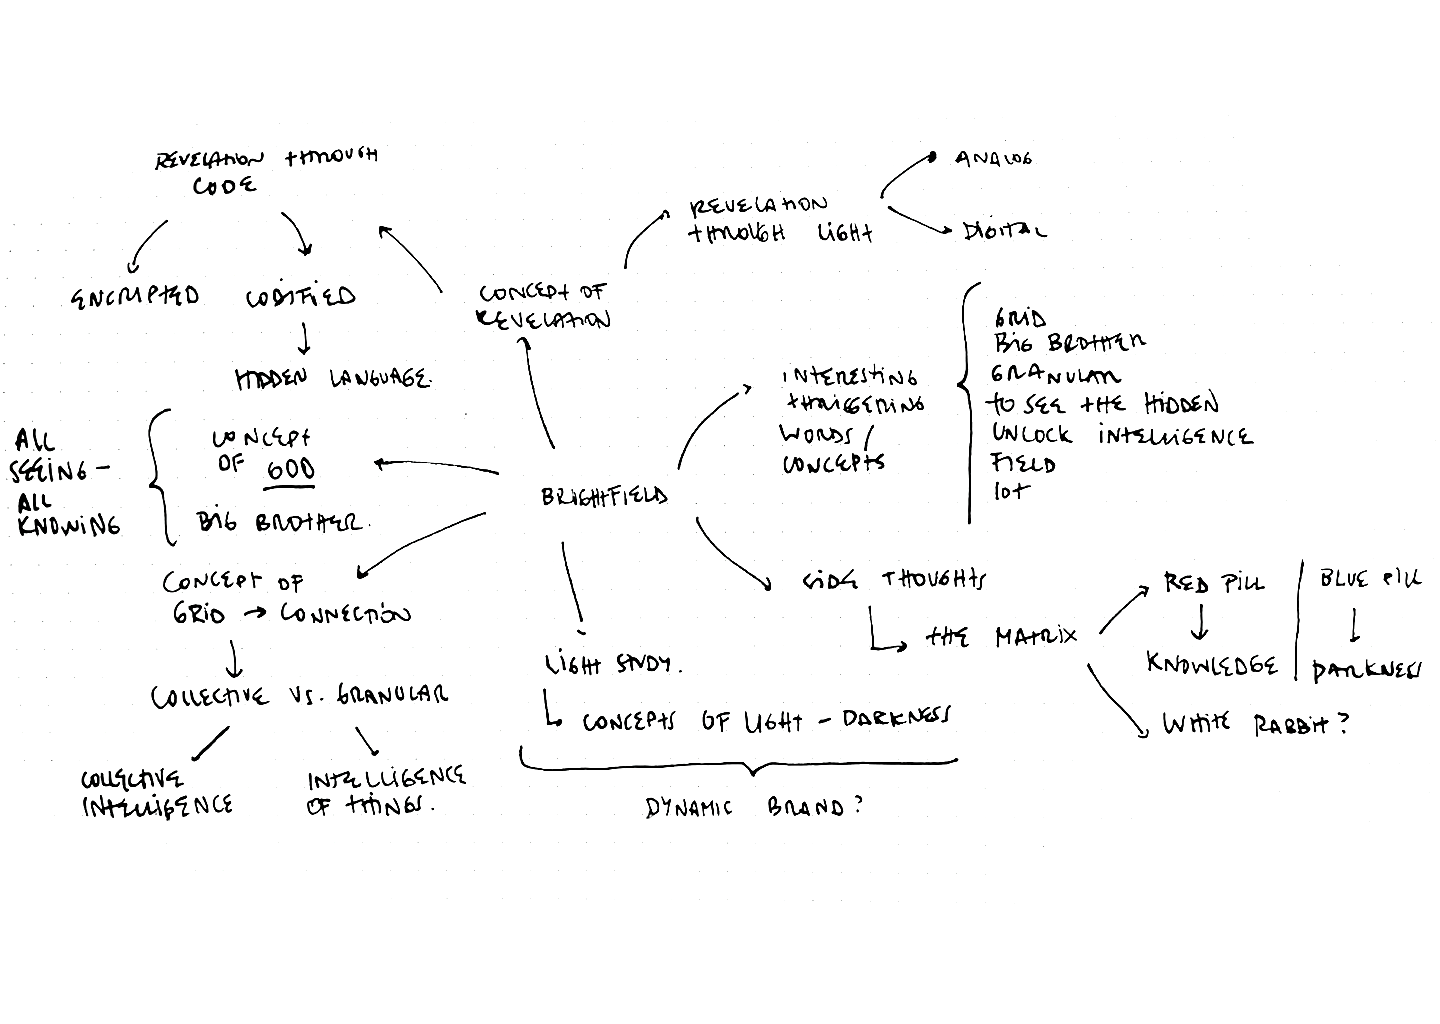 REVELATION THROUGH
CODE
ENCRYPTED
CODIFIED
HIDDEN LANGUAGE.
CONCEPT OF
REVELATION
REVELATION
THROUGH LIGHT
ANALOG
DIGITAL
INTERESTING
THRIGGERING
WORDS /
CONCEPTS
GRID
BIG BROTHER
GRANULAR
TO SEE THE HIDDEN
UNLOCK INTELLIGENCE
FIELD
IOT
ALL
SEEING –
ALL
KNOWING
CONCEPT
OF GOD
BIG BROTHER.
BRIGHTFIELD
CONCEPT OF
GRID → CONNECTION
COLLECTIVE VS. GRANULAR
COLLECTIVE
INTELLIGENCE
INTELLIGENCE
OF THINGS.
LIGHT STUDY.
CONCEPTS OF LIGHT – DARKNESS
DYNAMIC BRAND?
SIDE THOUGHTS
THE MATRIX
RED PILL
KNOWLEDGE
BLUE PILL
DARKNESS
WHITE RABBIT?